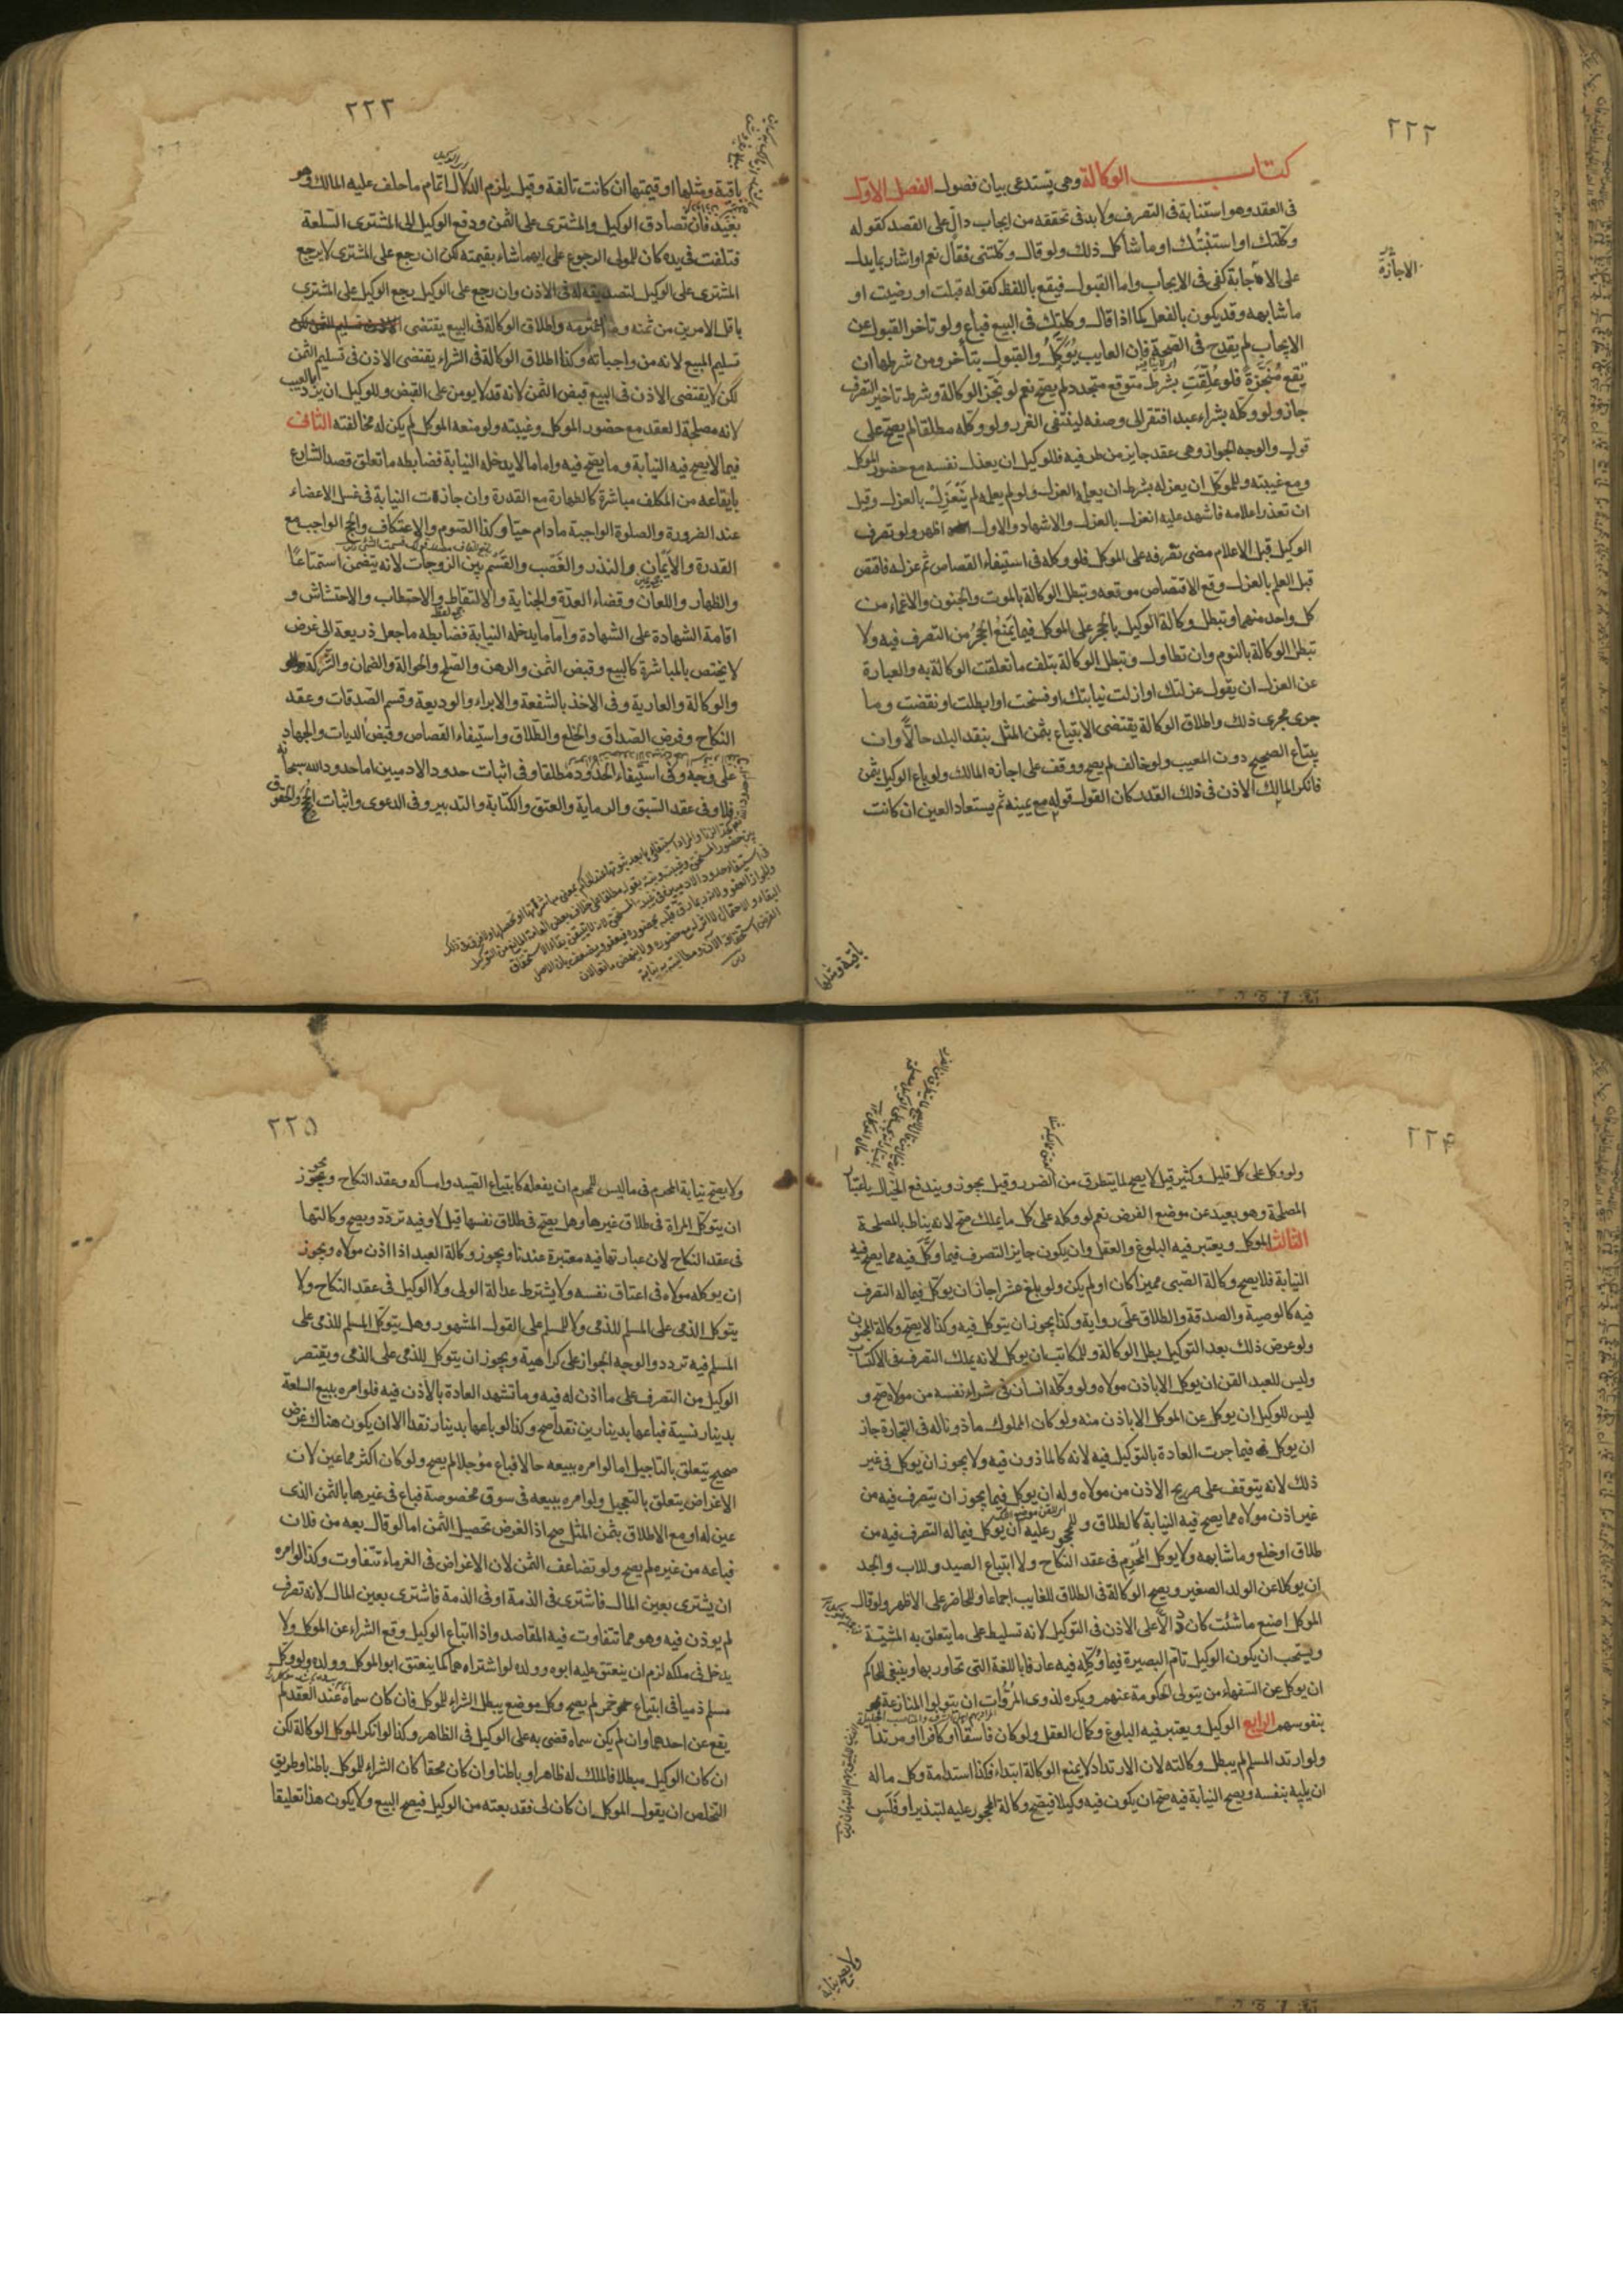 ٢٢٢
كتاب الوكالة وهي يستدعي بيان فصول الفصل الاول
في العقد وهو استنابة في التصرف ولا بد في تحققه من ايجاب دال على القصد كقوله
وكلتك او استنبتك او ما شاكل ذلك ولو قال وكلتني فقال نعم او اشار بما يدل
على الاجابة كفى في الايجاب واما القبول فيقع باللفظ كقوله قبلت او رضيت او
الاجازة
ما شابهه وقد يكون بالفعل كما اذا قال وكلتك في البيع فباع ولو تاخر القبول عن
الايجاب لم يقدح في الصحة فان الغايب يوكل والقبول يتأخر ومن شرطها ان
يقع منجزة فلو علقت بشرط متوقع متجدد لم يصح نعم لو نجز الوكالة وشرط تاخير التصرف
جاز ولو وكله بشراء عبد افتقر الى وصفه لينتفى الغرر ولو وكله مطلقا لم يصح على
قول والوجه الجواز وهى عقد جايز من طرفيه فللوكيل ان يعزل نفسه مع حضور الموكل
ومع غيبته وللموكل ان يعزله بشرط ان يعلمه العزل ولو لم يعلمه لم ينعزل بالعزل وقيل
ان تعذر اعلامه فاشهد عليه انعزل بالعزل والاشهاد والاول اظهر ولو تصرف
الوكيل قبل الاعلام مضى تصرفه على الموكل فلو وكله في استيفاء القصاص ثم عزله فاقتص
قبل العلم بالعزل وقع الاقتصاص موقعه وتبطل الوكالة بالموت والجنون والاغماء من
كل واحد منهما وتبطل وكالة الوكيل بالحجر على الموكل فيما يمنع الحجر من التصرف فيه ولا
تبطل الوكالة بالنوم وان تطاول وتبطل الوكالة بتلف ما تعلقت الوكالة به والعبارة
عن العزل ان يقول عزلتك او ازلت نيابتك او فسخت او ابطلت او نقضت وما
جرى مجرى ذلك واطلاق الوكالة يقتضى الابتياع بثمن المثل بنقد البلد حالا وان
يبتاع الصحيح دون المعيب ولو خالف لم يصح ووقف على اجازة المالك ولو باع الوكيل بثمن
فانكر المالك الاذن في ذلك القدر كان القول قوله مع يمينه ثم يستعاد العين ان كانت
باقية ومثلها
٢٢٣
باقية ومثلها او قيمتها ان كانت تالفة وقيل يلزم الدلال اتمام ما حلف عليه المالك وهو
بعيد فان تصادق الوكيل والمشترى على الثمن ودفع الوكيل الى المشترى السلعة
فتلفت في يده كان للمولى الرجوع على ايهما شاء بقيمته لكن ان رجع على المشترى لا يرجع
المشترى على الوكيل لتصديقه له في الاذن وان رجع على الوكيل رجع الوكيل على المشترى
باقل الامرين من ثمنه وما اغترمه واطلاق الوكالة في البيع يقتضى
تسليم المبيع لانه من واجباته وكذا اطلاق الوكالة في الشراء يقتضى الاذن في تسليم الثمن
لكن لا يقتضى الاذن في البيع قبض الثمن لانه قد لا يومن على القبض وللوكيل ان يرد بالعيب
لانه مصلحة للعقد مع حضور الموكل وغيبته ولو منعه الموكل لم يكن له مخالفته الثانى
فيما لا يصح فيه النيابة وما يصح فيه واما ما لا يدخله النيابة فضابطه ما تعلق قصد الشارع
بايقاعه من المكلف مباشرة كالطهارة مع القدرة وان جازت النيابة في غسل الاعضاء
عند الضرورة والصلوة الواجبة ما دام حيا وكذا الصوم والاعتكاف والحج الواجب مع
القدرة والايمان والنذر والغصب والقسم بين الزوجات لانه يتضمن استمتاعا
والظهار واللعان وقضاء العدة والجناية والالتقاط والاحتطاب والاحتشاش و
اقامة الشهادة على الشهادة واما ما يدخله النيابة فضابطه ما جعل ذريعة الى غرض
لا يختص بالمباشرة كالبيع وقبض الثمن والرهن والصلح والحوالة والضمان والشركة
والوكالة والعارية وفي الاخذ بالشفعة والابراء والوديعة وقسم الصدقات وعقد
النكاح وفرض الصداق والخلع والطلاق واستيفاء القصاص وقبض الديات والجهاد
على وجه وفى استيفاء الحدود مطلقا وفي اثبات حدود الادميين اما حدود الله سبحانه
فلا وفى عقد السبق والرماية والعتق والكتابة والتدبير وفى الدعوى واثبات الحجج والحقوق
٢٢٤
ولو وكل على كل قليل وكثير قيل لا يصح لما يتطرق من الضرر وقيل يجوز ويندفع الحال باعتبار
المصلحة وهو بعيد عن موضع الفرض نعم لو وكله على كل ما يملك صح لانه يناط بالمصلحة
الثالث الموكل ويعتبر فيه البلوغ والعقل وان يكون جايز التصرف فيما وكل فيه مما يصح فيه
النيابة فلا يصح وكالة الصبى مميزا كان او لم يكن ولو بلغ عشرا جاز ان يوكل فيما له التصرف
فيه كالوصية والصدقة والطلاق على رواية وكذا يجوز ان يتوكل فيه وكذا لا يصح وكالة المجنون
ولو عرض ذلك بعد التوكيل بطل الوكالة وللمكاتب ان يوكل لانه يملك التصرف في الاكتساب
وليس للعبد القن ان يوكل الا باذن مولاه ولو وكله انسان في شراء نفسه من مولاه صح و
ليس للوكيل ان يوكل عن الموكل الا باذن منه ولو كان المملوك ماذونا له في التجارة جاز
ان يوكل فيما جرت العادة بالتوكيل فيه لانه كالماذون فيه ولا يجوز ان يوكل في غير
ذلك لانه يتوقف على صريح الاذن من مولاه وله ان يوكل فيما يجوز ان يتصرف فيه من
غير اذن مولاه مما يصح فيه النيابة كالطلاق وللمحجور عليه ان يوكل فيما له التصرف فيه من
طلاق او خلع وما شابهه ولا يوكل المحرم في عقد النكاح ولا ابتياع الصيد وللاب والجد
ان يوكلا عن الولد الصغير ويصح الوكالة في الطلاق للغايب اجماعا وللحاضر على الاظهر ولو قال
الموكل اصنع ما شئت كان دالا على الاذن في التوكيل لانه تسليط على ما يتعلق به المشية
ويستحب ان يكون الوكيل تام البصيرة فيما وكل فيه عارفا باللغة التى تحاور بها وينبغى للحاكم
ان يوكل عن السفهاء من يتولى الحكومة عنهم ويكره لذوى المروات ان يتولوا المنازعة
بنفوسهم الرابع الوكيل ويعتبر فيه البلوغ وكمال العقل ولو كان فاسقا او كافرا او مرتدا
ولو ارتد المسلم لم يبطل وكالته لان الارتداد لا يمنع الوكالة ابتداء فكذا استدامة وكل ما له
ان يليه بنفسه ويصح النيابة فيه صح ان يكون فيه وكيلا فيصح وكالة المحجور عليه لتبذير او فلس
ولا يصح نيابة
٢٢٥
ولا يصح نيابة المحرم في ما ليس للمحرم ان يفعله كابتياع الصيد وامساكه وعقد النكاح ويجوز
ان يتوكل المراة في طلاق غيرها وهل يصح في طلاق نفسها قيل لا وفيه تردد ويصح وكالتها
في عقد النكاح لان عبارتها فيه معتبرة عندنا ويجوز وكالة العبد اذا اذن مولاه ويجوز
ان يوكله مولاه في اعتاق نفسه ولا يشترط عدالة الولى ولا الوكيل في عقد النكاح ولا
يتوكل الذمى على المسلم للذمى ولا للمسلم على القول المشهور وهل يتوكل المسلم للذمى على
المسلم فيه تردد والوجه الجواز على كراهية ويجوز ان يتوكل للذمى على الذمى ويقتصر
الوكيل من التصرف على ما اذن له فيه وما تشهد العادة بالاذن فيه فلو امره ببيع السلعة
بدينار نسية فباعها بدينارين نقدا صح وكذا لو باعها بدينار نقدا الا ان يكون هناك غرض
صحيح يتعلق بالتاجيل اما لو امره ببيعه حالا فباع مؤجلا لم يصح ولو كان اكثر مما عين لان
الاغراض يتعلق بالتعجيل ولو امره ببيعه في سوق مخصوصة فباع في غيرها بالثمن الذى
عين له او مع الاطلاق بثمن المثل صح اذ الغرض تحصيل الثمن اما لو قال بعه من فلان
فباعه من غيره لم يصح ولو تضاعف الثمن لان الاغراض في الغرماء تتفاوت وكذا لو امره
ان يشترى بعين المال فاشترى في الذمة او في الذمة فاشترى بعين المال لانه تصرف
لم يوذن فيه وهو مما تتفاوت فيه المقاصد واذا ابتاع الوكيل وقع الشراء عن الموكل ولا
يدخل في ملكه لزم ان ينعتق عليه ابوه وولده لو اشتراهما كما ينعتق ابو الموكل وولده ولو وكل
مسلم ذميا في ابتياع خمر لم يصح وكل موضع يبطل الشراء للموكل فان كان سماه عند العقد لم
يقع عن احدهما وان لم يكن سماه قضى به على الوكيل في الظاهر وكذا لو انكر الموكل الوكالة لكن
ان كان الوكيل مبطلا فالملك له ظاهرا وباطنا وان كان محقا كان الشراء للموكل باطنا وطريق
التخلص ان يقول الموكل ان كان لى فقد بعته من الوكيل فيصح البيع ولا يكون هذا تعليقا